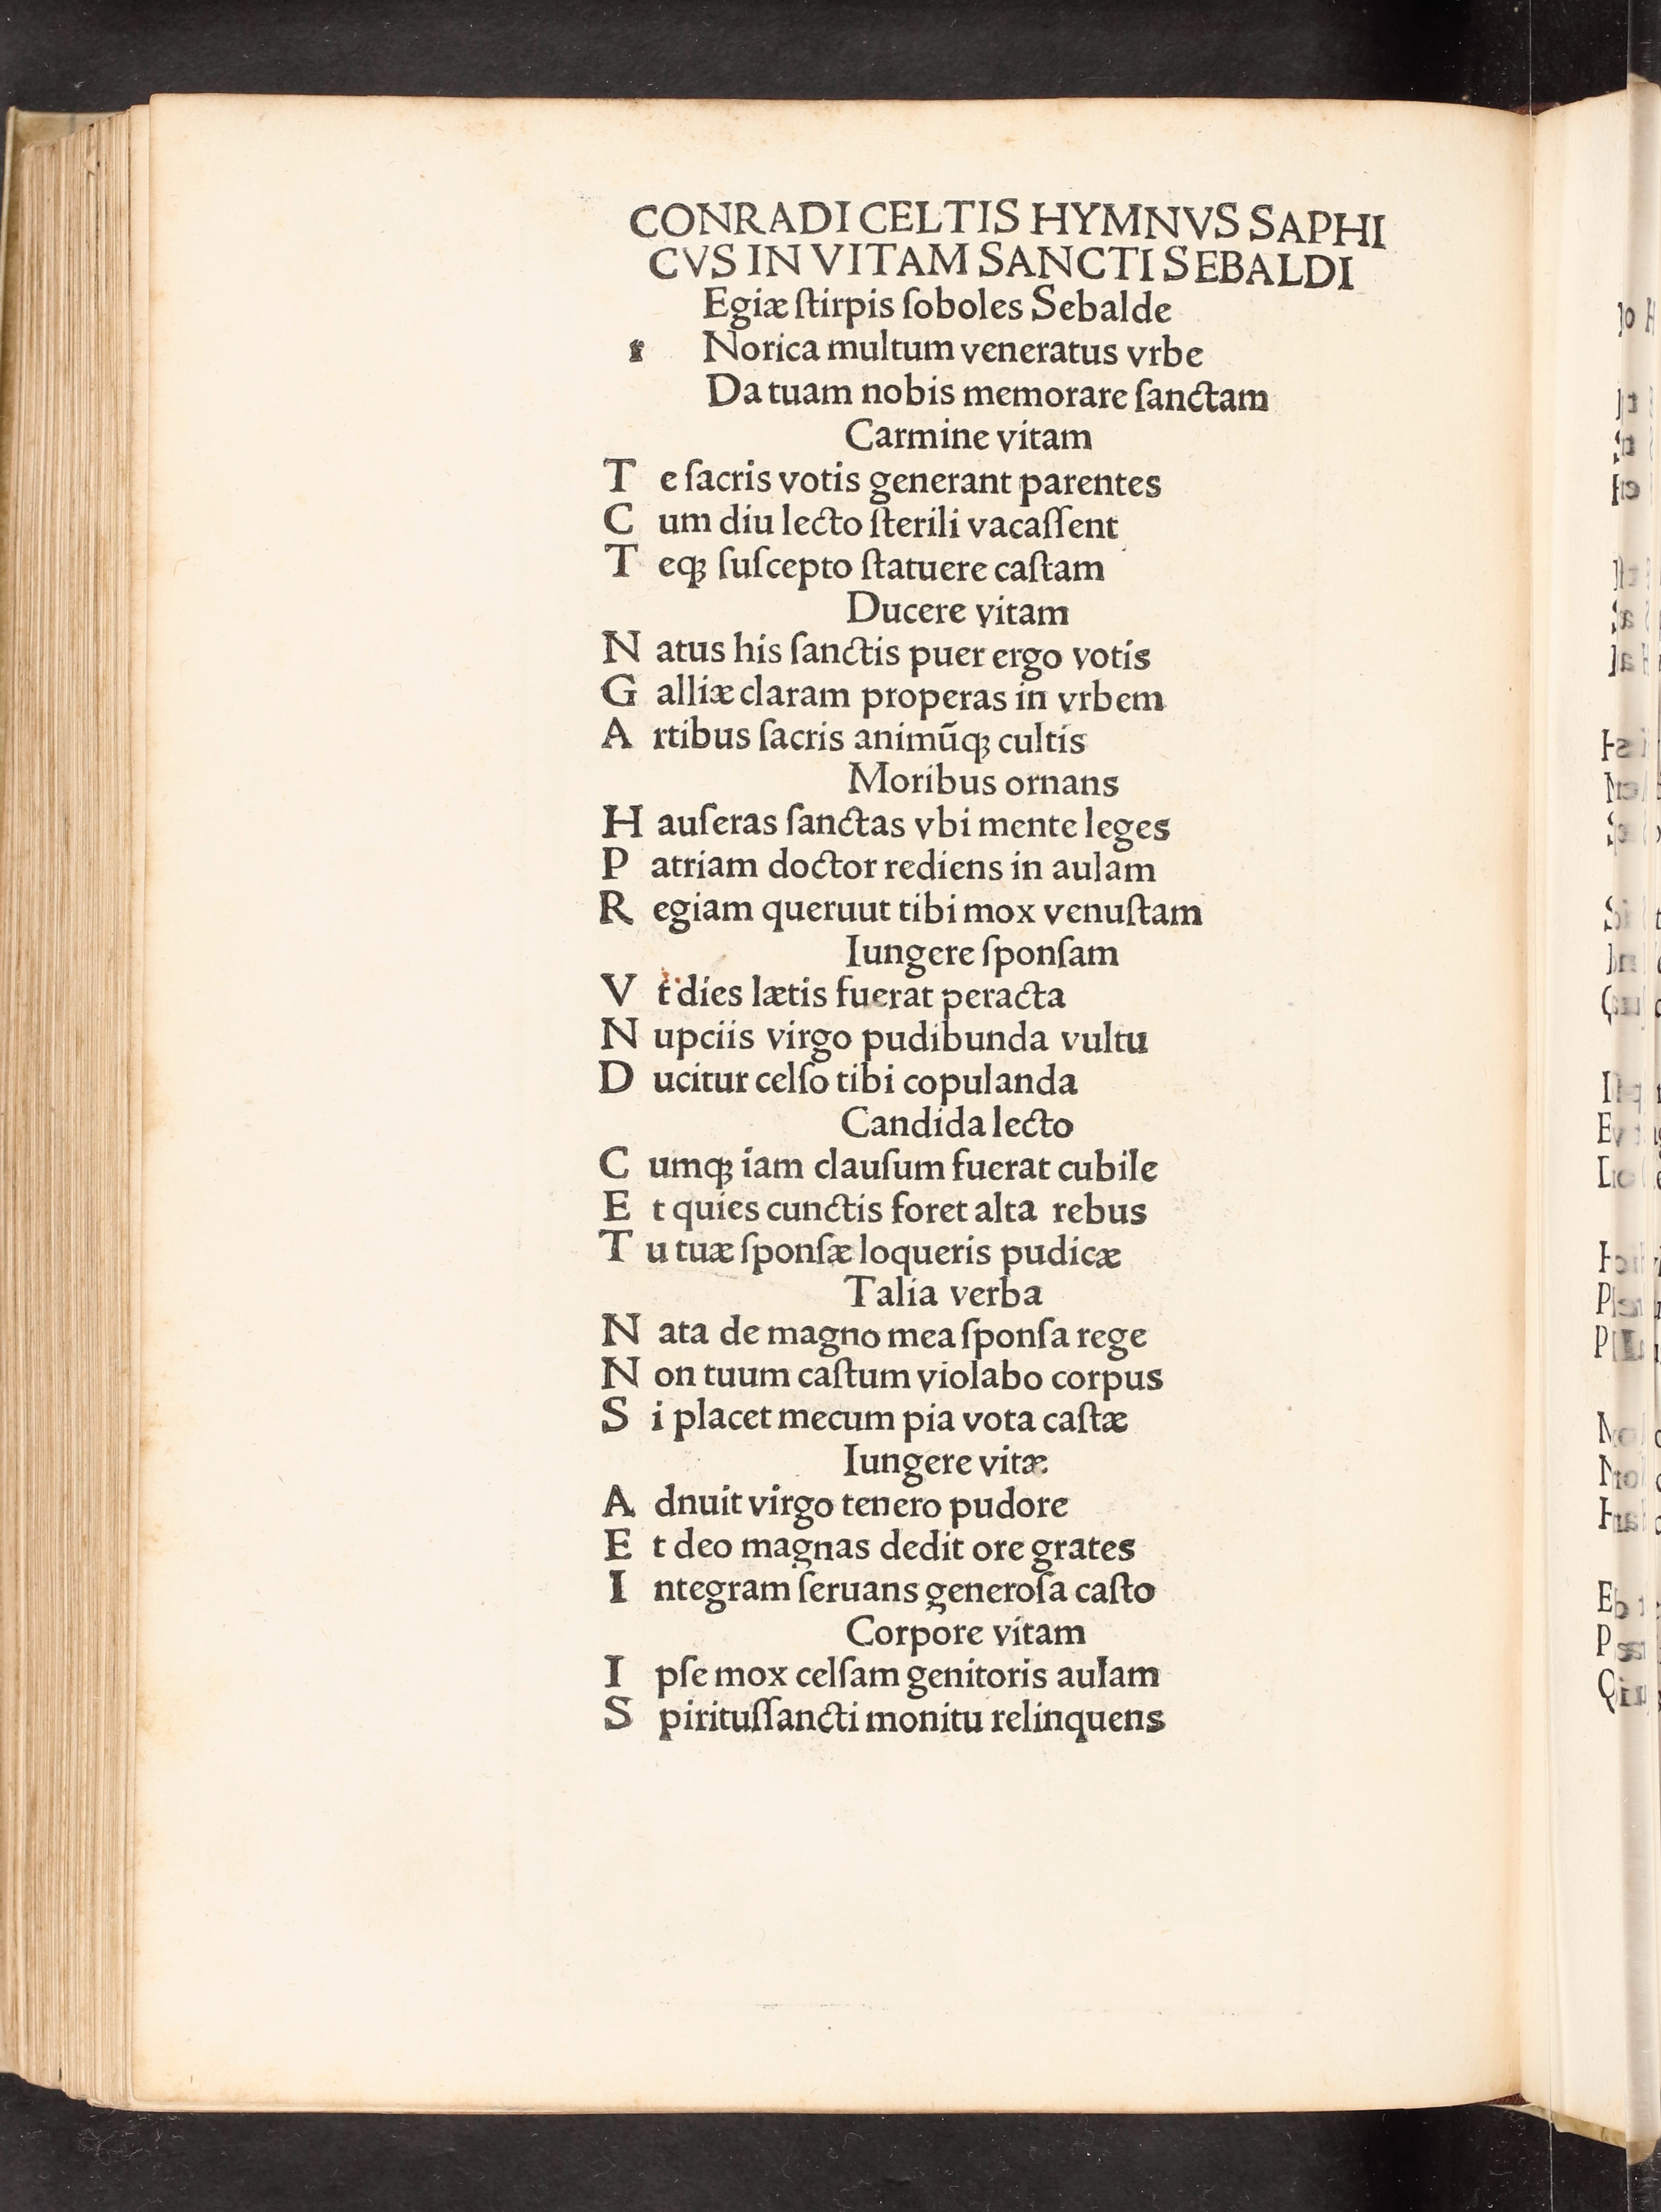 CONRADI CELTIS HYMNVS SAPHI
CVS IN VITAM SANCTI SEBALDI
Egiæ ſtirpis ſoboles Sebalde
r Norica multum veneratus vrbe
Da tuam nobis memorare ſanctam
Carmine vitam
T e ſacris votis generant parentes
C um diu lecto ſterili vacaſſent
T eqꝫ ſuſcepto ſtatuere caſtam
Ducere vitam
N atus his ſanctis puer ergo votis
G alliæ claram properas in vrbem
A rtibus ſacris animūqꝫ cultis
Moribus ornans
H auſeras ſanctas vbi mente leges
P atriam doctor rediens in aulam
R egiam queruut tibi mox venuſtam
Iungere ſponſam
V t dies lætis fuerat peracta
N upciis virgo pudibunda vultu
D ucitur celſo tibi copulanda
Candida lecto
C umqꝫ iam clauſum fuerat cubile
E t quies cunctis foret alta rebus
T u tuæ ſponſæ loqueris pudicæ
Talia verba
N ata de magno mea ſponſa rege
N on tuum caſtum violabo corpus
S i placet mecum pia vota caſtæ
Iungere vitæ
A dnuit virgo tenero pudore
E t deo magnas dedit ore grates
I ntegram ſeruans generoſa caſto
Corpore vitam
I pſe mox celſam genitoris aulam
S pirituſſancti monitu relinquens